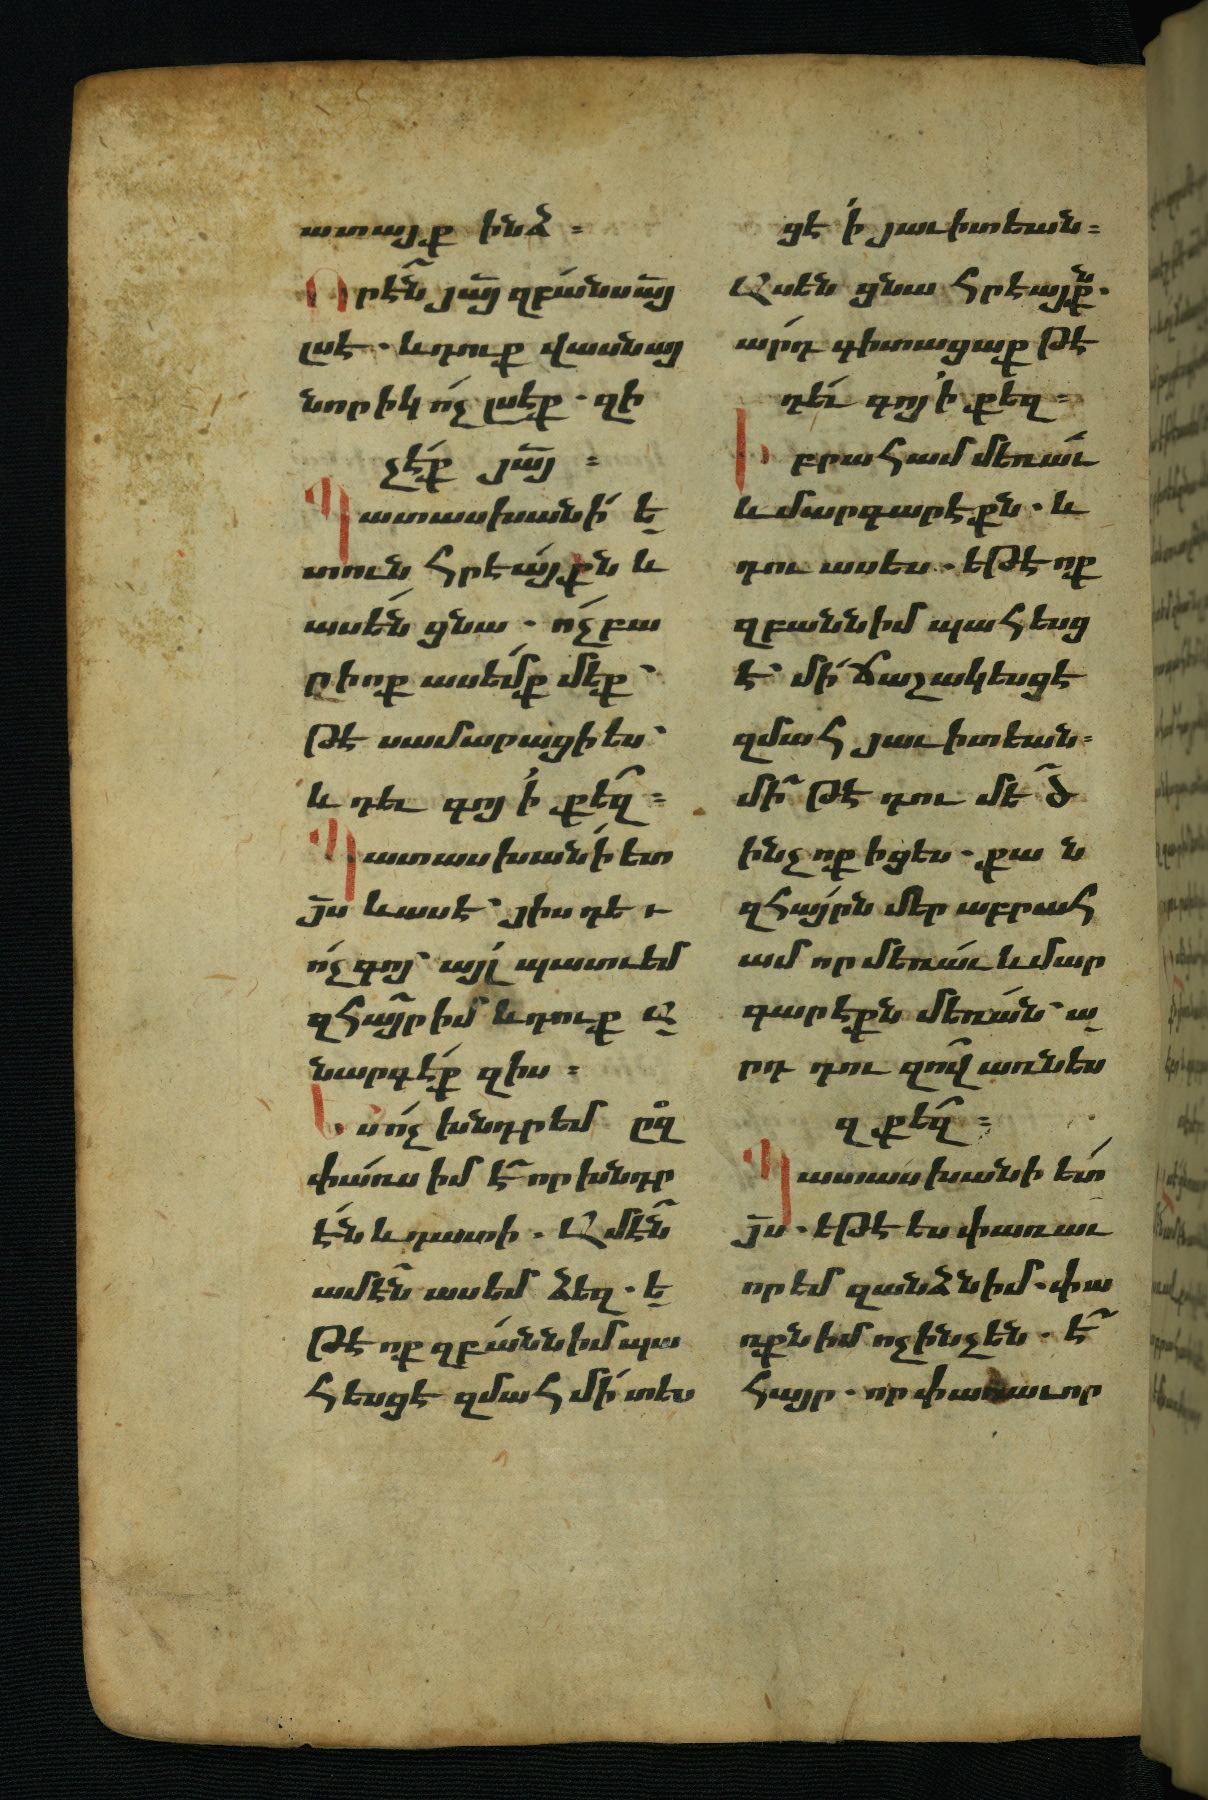 ատայք ինձ ։
Որ է՛ն յա՟յ զբանս ա՟յ
լսէ . և դուք վասն այ
նորիկ ո՛չ լսէք . զի
չէ՛ք յա՟յ ։
Պատասխանի՛ ե
տուն հրեա՛յքն և
ասե՛ն ցնա . ո՛չ բա
րիոք ասեմք մեք՝
թէ սամարացի ես՝
և դեւ գոյ ՛ի քե՛զ ։
Պատասխանի՛ ետ
յ՟ս և ասէ՝ յիս դե ւ
ո՛չ գոյ՝ այլ պատուեմ
զհա՛յր իմ և դուք ա
նարգէ՛ք զիս ։
Ես ո՛չ խնդրեմ ըզ
փառս իմ է՛ որ խնդր
է՛ն և դատի . Ամէ՛ն
ամէն ասեմ ձեզ . ե
թէ ոք զբա՛նն իմ պա
հեսցէ զմահ մի՛ տես
ցէ ՛ի յաւիտեան ։
Ասեն ցնա հրեայքն .
ա՛րդ գիտացաք թէ
դե՛ւ գոյ ՛ի քեզ ։
Աբրահամ մեռա՛ւ
և մարգարէքն . և
դու ասես . եթէ ոք
զբանն իմ պահեսց
է՝ մի՛ ճաշակեսցէ
զմահ յաւիտեան ։
մի՛ թէ դու մե ծ
ինչ ոք իցես . քա ն
զհա՛յրն մեր աբրահ
ամ որ մեռա՛ւ և մար
գարէքն մեռա՛ն՝ ա
րդ դու զո՛վ առնես
զ քե՛զ ։
Պատասխանի ետ՛
յ՟ս . եթէ ես փառաւ
որեմ զանձն իմ . փա
ռքն իմ ոչինչ են . է՛
հայր . որ փառաւոր